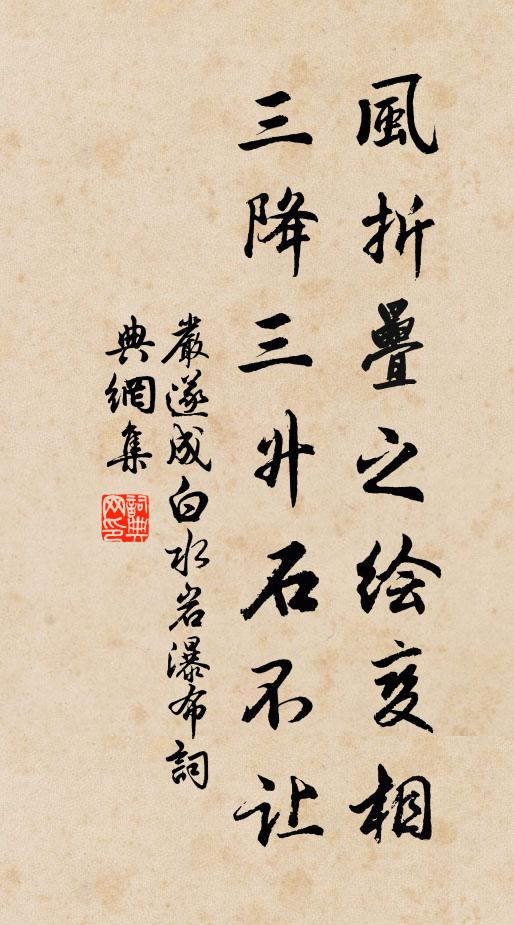 風折疊之绘变相
三降三升石不让
嚴遂成白水岩瀑布詞
典網集
詞典网印